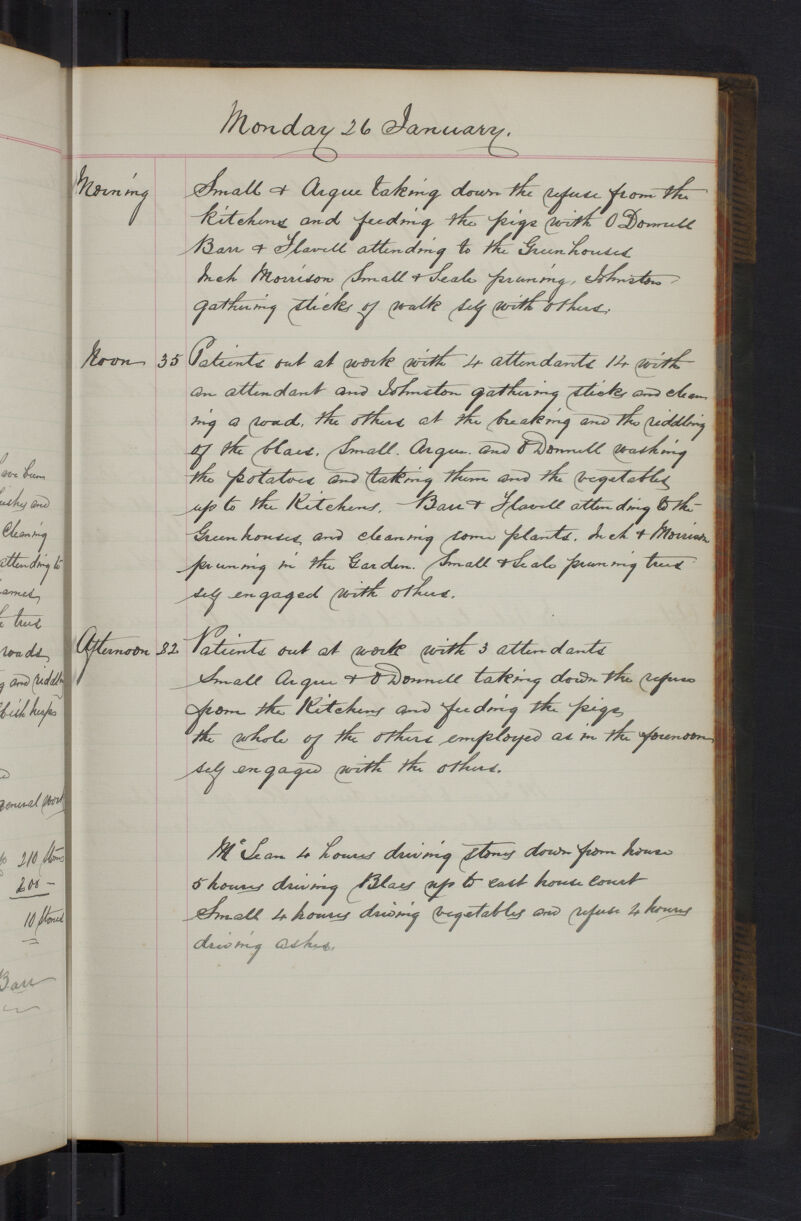 Monday 26 January.
Morning Small & Argue taking down the refuse from the
kitchens and feeding the pigs with O Donnell
Barr & Flavell attending to the Greenhouses
Inch Morrison Small & Seale pruning, Johnston
gathering sticks of walk self with others.
Noon 35 Patients out at work with 4 attendants 14 with
an attendant and Johnston gathering sticks and clean
ing a road, the others at the breaking and the riddling
of the blaes. Small. Argue. and O Donnell washing
the potatoes and taking them and the vegetables
up to the Kitchens. Barr & Flavell attending to the
Greenhouses and cleaning some plants. Inch & Morrison
pruning in the Garden. Small & Seale pruning trees
self engaged with others.
Afternoon 32 Patients out at work with 3 attendants
Small Argue & O Donnell taking down the refuse
from the Kitchens and feeding the pigs
the whole of the others employed as in the forenoon
self engaged with the others.
McLean 4 hours driving stones down from house
5 hours driving Blaes up to east house court
Small 4 hours driving vegetables and refuse 4 hours
driving ashes.
have been
and
Cleaning
attending to
trees
roads
and riddling
heaps
general work
210 Stones
200 –
10 Stones
Barr